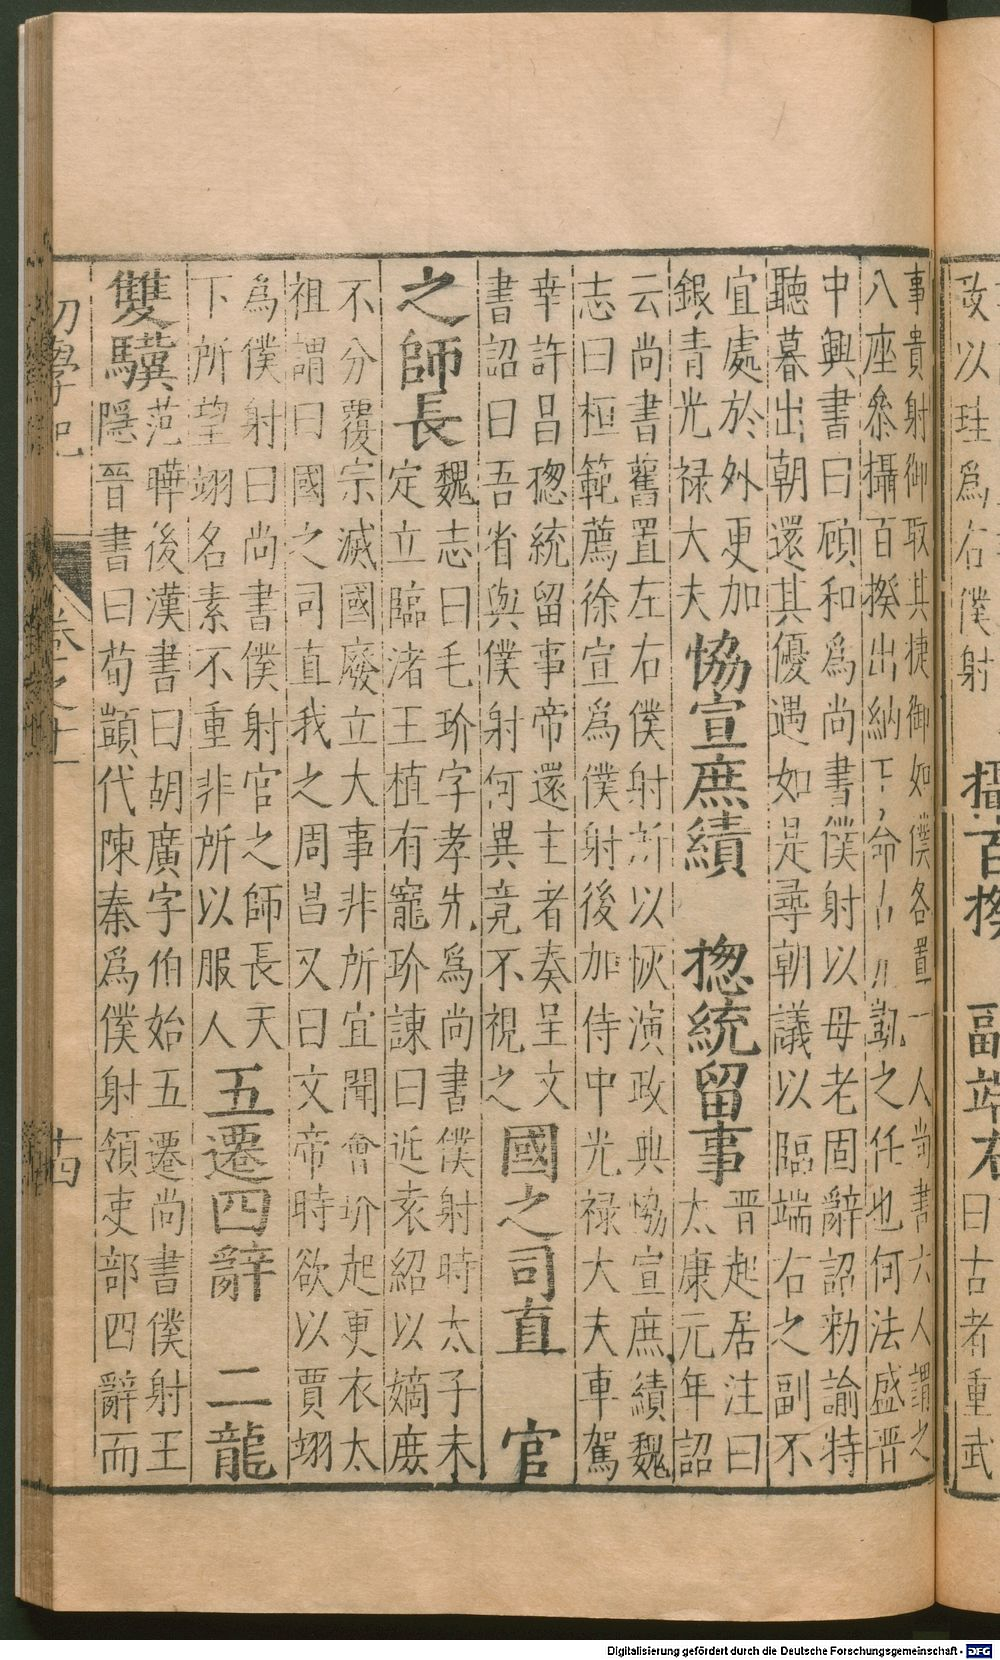 政以珪爲右僕射
攝百揆 副端右
曰古者重武
事貴射御取其捷御如僕各置一人尚書六人謂之
八座叅攝百揆出納
之任也何法盛晋
中興書曰顔和爲尚書僕射以母老固辭詔勑諭特
聽暮出朝還其優遇如是尋朝議以臨端右之副不
宜處於外更加
銀青光禄大夫
恊宣庶績 揔統留事
晋起居注曰
太康元年詔
云尚書舊置左右僕射所以恢演政典恊宣庶績魏
志曰桓範薦徐宣爲僕射後加侍中光禄大夫車駕
幸許昌揔統留事帝還主者奏呈文
書詔曰吾省與僕射何異竟不視之
國之司直 官
之師長
魏志曰毛玠字孝先爲尚書僕射時太子未
定立臨渚王植有寵玠諌曰近袁紹以嫡庶
不分覆宗滅國廢立大事非所宜聞會玠起更衣太
祖謂曰國之司直我之周昌又曰文帝時欲以賈翊
爲僕射曰尚書僕射官之師長天
下所望翊名素不重非所以服人
五遷四辭 二龍
雙驥
范曄後漢書曰胡廣字伯始五遷尚書僕射王
隱晋書曰荀顗代陳泰爲僕射領吏部四辭而
初學記 卷之十一 十四
Digitalisierung gefördert durch die Deutsche Forschungsgemeinschaft - DFG